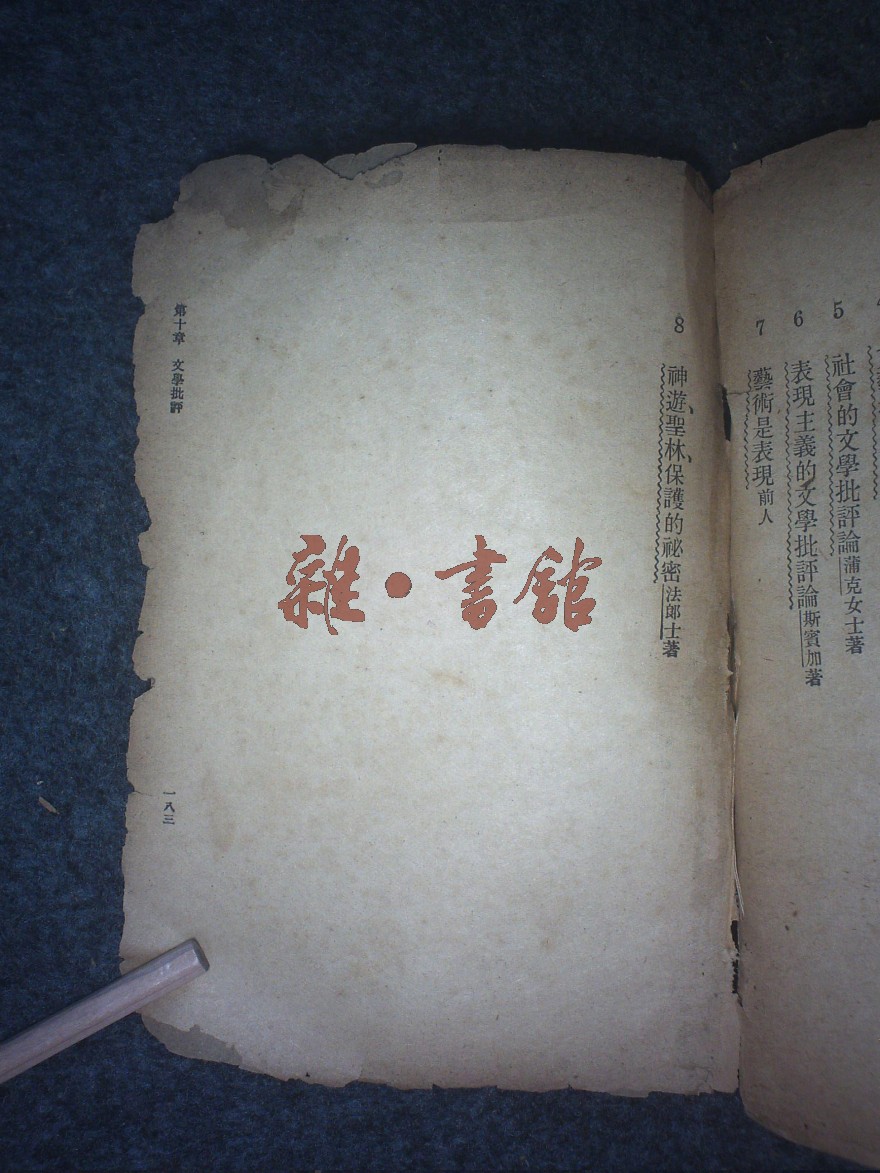 5 社會的文學批評論蒲克女士著
6 表現主義的文學批評論斯賓加著
7 藝術是表現前人
8 神遊、聖林、保護的祕密法郎士著
第十章 文學批評
一八三
雜·書館